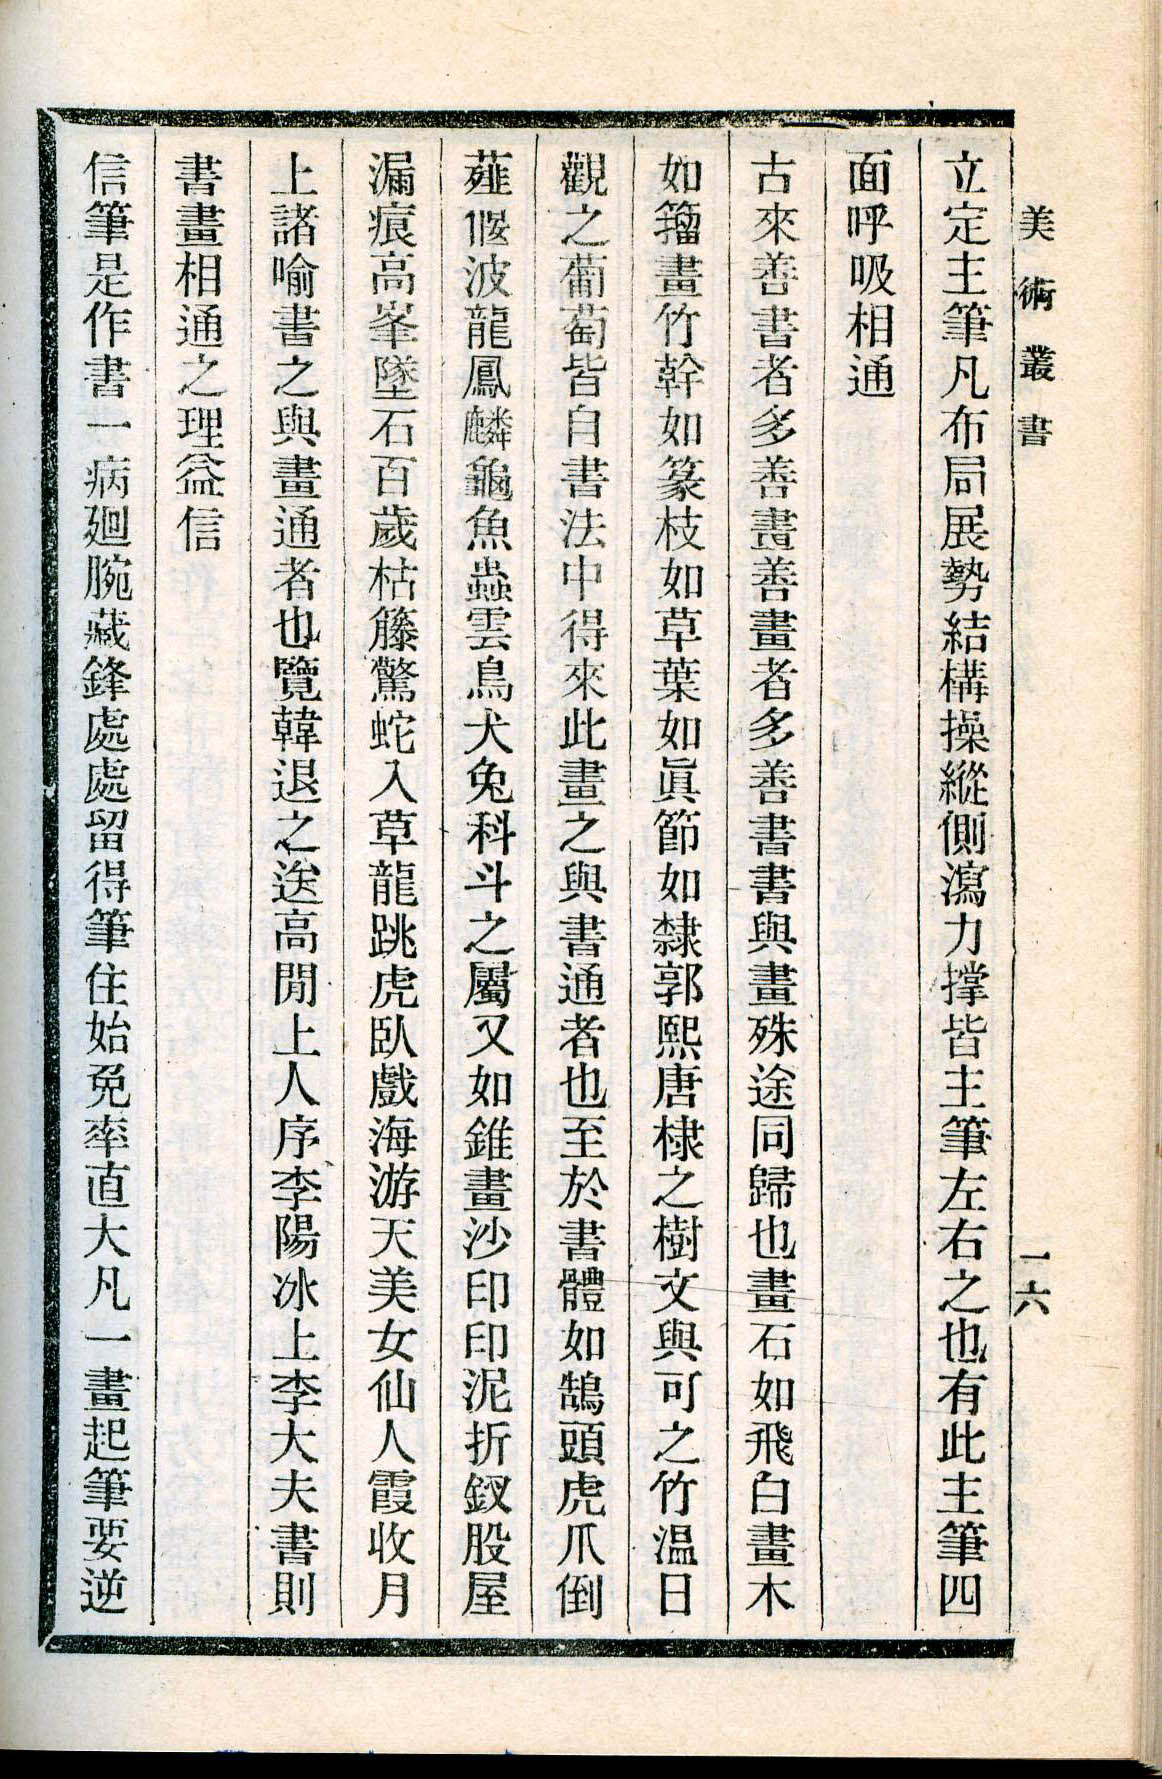 美術叢書
一六
立定主筆凡布局展勢結構操縱側瀉力撐皆主筆左右之也有此主筆四
面呼吸相通
古來善書者多善畫善畫者多善書書與畫殊途同歸也畫石如飛白畫木
如籀畫竹幹如篆枝如草葉如眞節如隸郭熙唐棣之樹文與可之竹溫日
觀之葡萄皆自書法中得來此畫之與書通者也至於書體如鵠頭虎爪倒
薤偃波龍鳳麟龜魚蟲雲鳥犬兔科斗之屬又如錐畫沙印印泥折釵股屋
漏痕高峯墜石百歲枯籐驚蛇入草龍跳虎臥戲海游天美女仙人霞收月
上諸喻書之與畫通者也覽韓退之送高閒上人序李陽冰上李大夫書則
書畫相通之理益信
信筆是作書一病廻腕藏鋒處處留得筆住始免率直大凡一畫起筆要逆